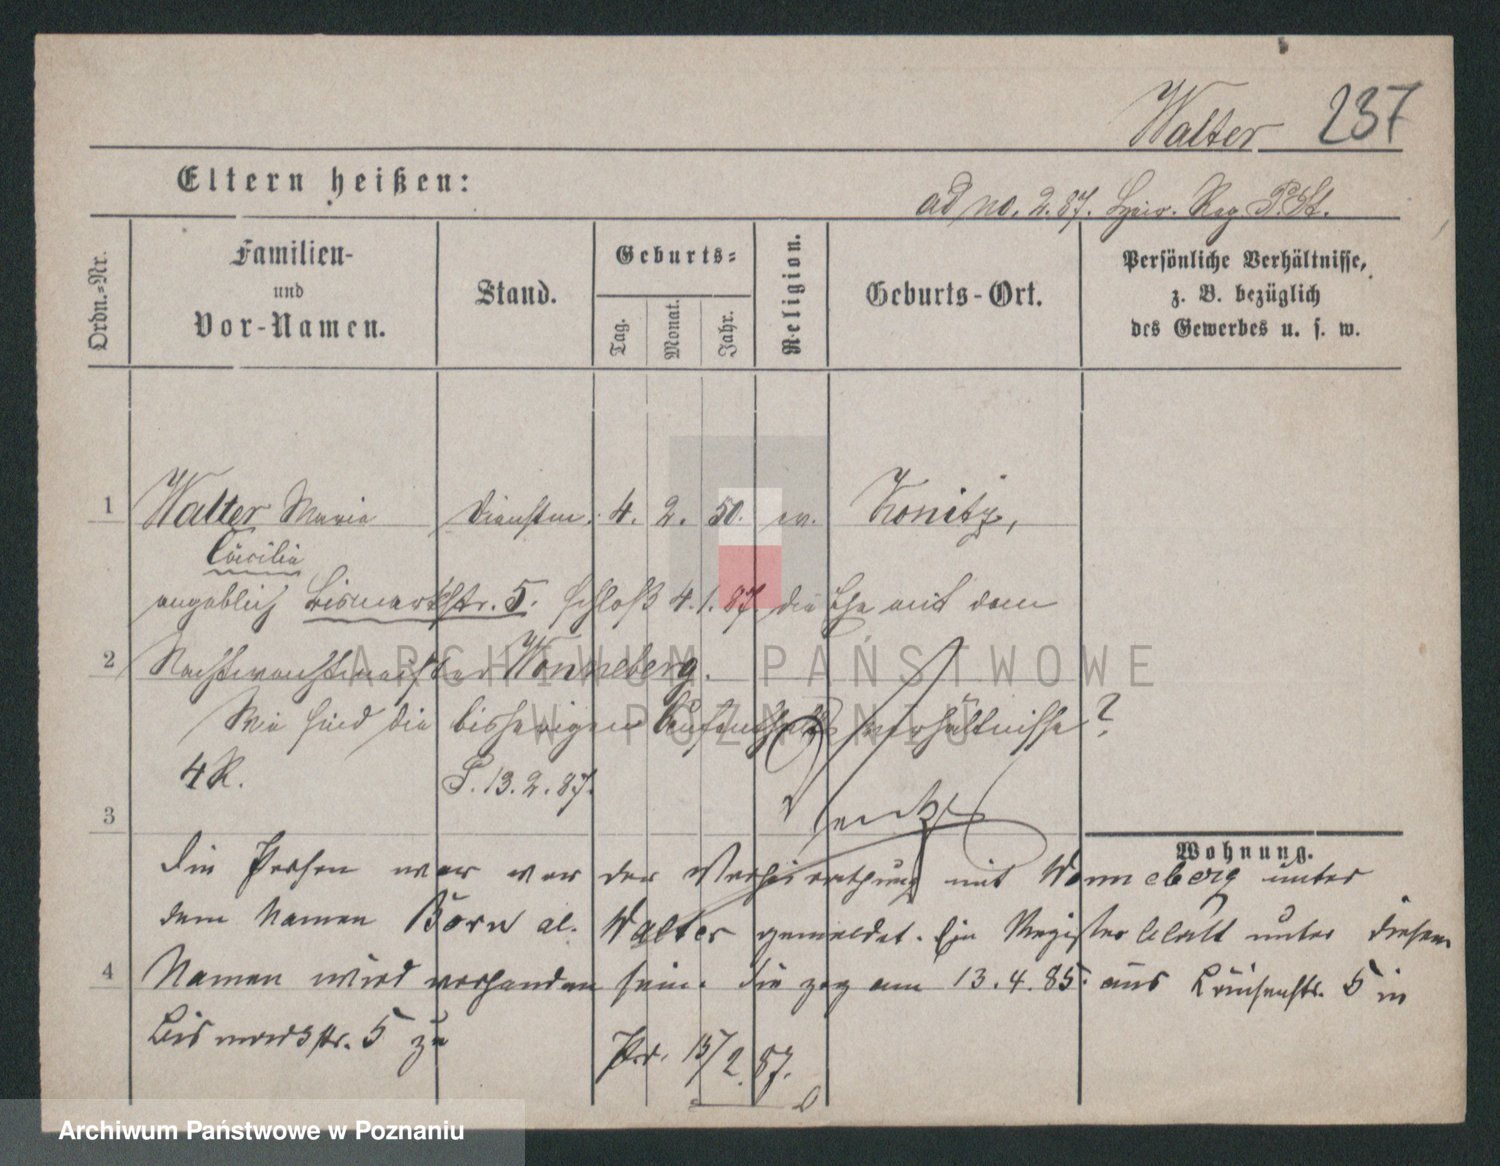 Walter 237
Eltern heißen:
ad no. 2. 87. Reg. P. St.
Ordn.-Nr.
Familien-
und
Vor-Namen.
Stand.
Geburts-
Tag.
Monat.
Jahr.
Religion.
Geburts-Ort.
Persönliche Verhältnisse,
z. B. bezüglich
des Gewerbes u. s. w.
1 Walter Maria Dienstm. 4. 2. 50. ev. Konitz,
Cäcilia
angeblich Bismarkstr. 5. schloß 4. 1. 87 die Ehe mit dem
2 Nachtwachtmeister Wonneberg.
Wie sind die bisherigen Aufenthaltsverhältnisse?
4 R. P. 13. 2. 87.
3
Wohnung.
Die Person war vor der Verheirathung mit Wonneberg unter
dem Namen Born al. Walter gemeldet. Ein Registerblatt unter diesem
4 Namen wird vorhanden sein. Sie zog am 13. 4. 85. aus Louisenstr. 5 in
Bismarckstr. 5 zu
15/2 87.
ARCHIWUM PAŃSTWOWE
W POZNANIU
Archiwum Państwowe w Poznaniu